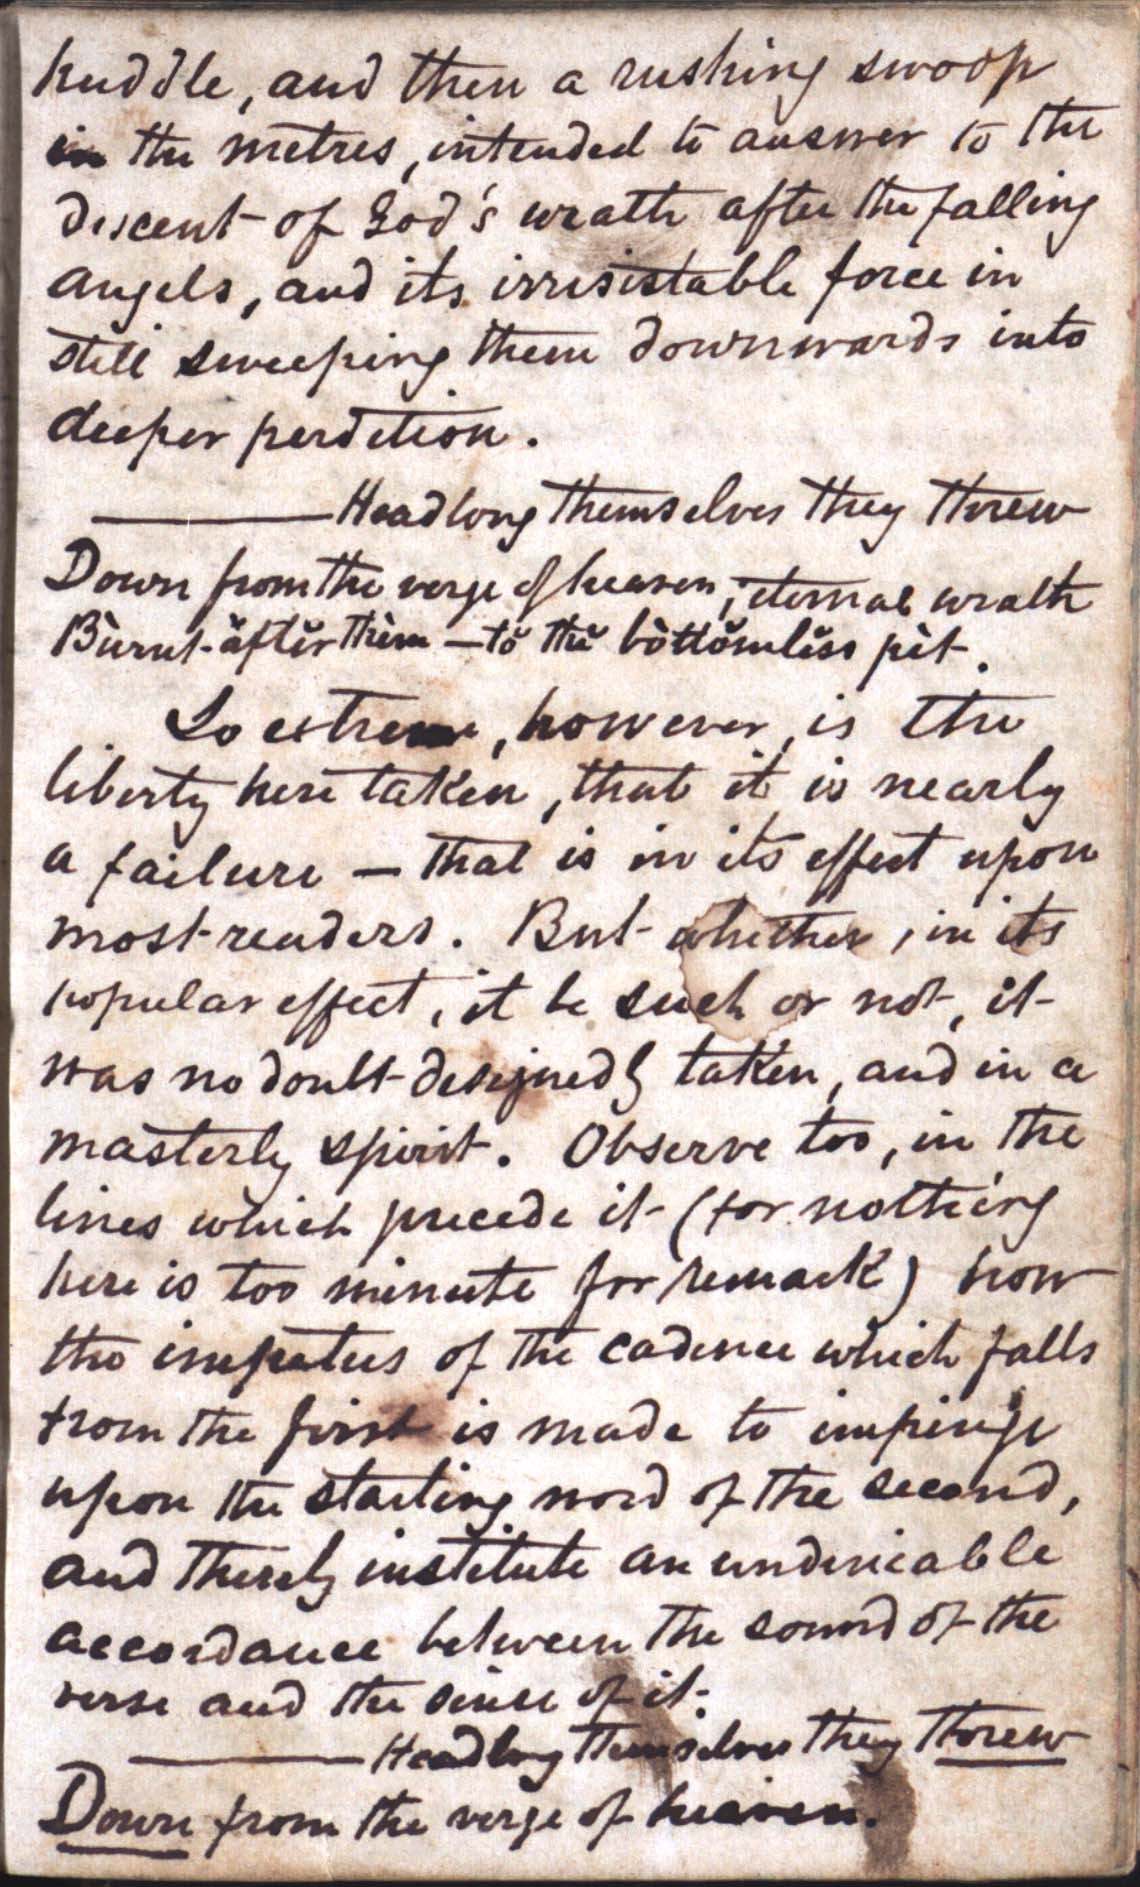 huddle, and then a rushing swoop
in the metres, intended to answer to the
descent of God's wrath after the falling
angels, and its irresistable force in
still sweeping them downwards into
deeper perdition.
——— Headlong themselves they threw
Down from the verge of heaven; eternal wrath
Bùrnt ăftĕr thèm — tŏ thĕ bòttŏmlĕss pìt.
So extreme, however, is the
liberty here taken, that it is nearly
a failure — that is in its effect upon
most readers. But whether, in its
popular effect, it be such or not, it
was no doubt designedly taken, and in a
masterly spirit. Observe too, in the
lines which precede it (for nothing
here is too minute for remark) how
the impetus of the cadence which falls
from the first is made to impinge
upon the starting word of the second,
and thereby institute an undeniable
accordance between the sound of the
verse and the sense of it.
——— Headlong themselves they threw
Down from the verge of heaven.